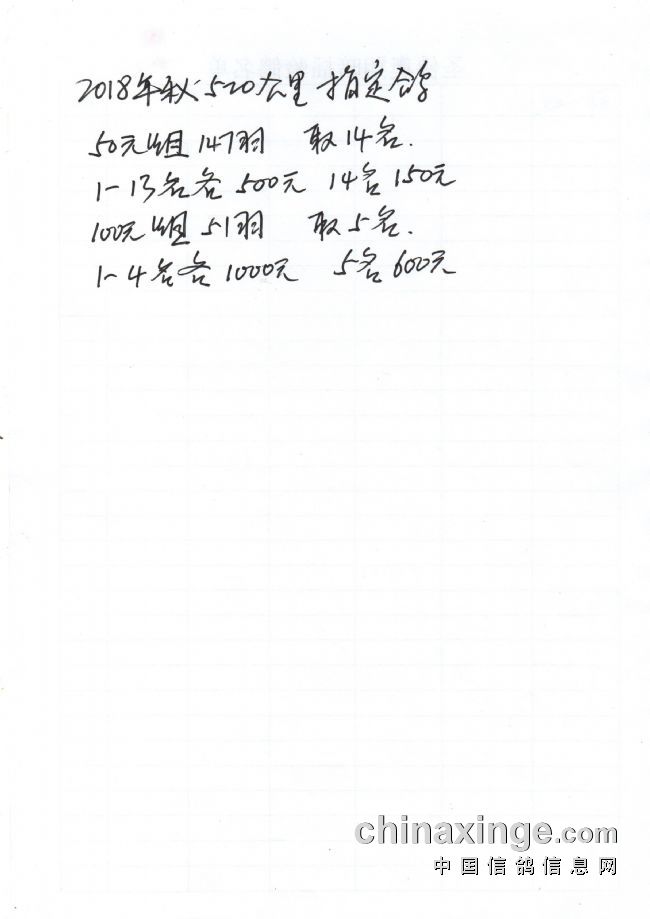 2018年秋520公里指定鸽
50元组147羽 取14名.
1-13名各500元 14名150元
100元组51羽 取5名.
1-4名各1000元 5名600元
chinaxinge.com
中国信鸽信息网